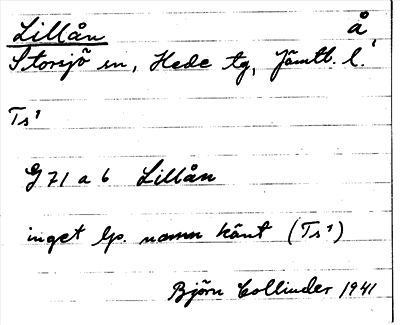 Lillån å,
Storsjö sn, Hede tg, Jämtl. l.
Ts¹
G 71 a b Lillån
inget lp. namn känt (Ts¹)
Björn Collinder 1941